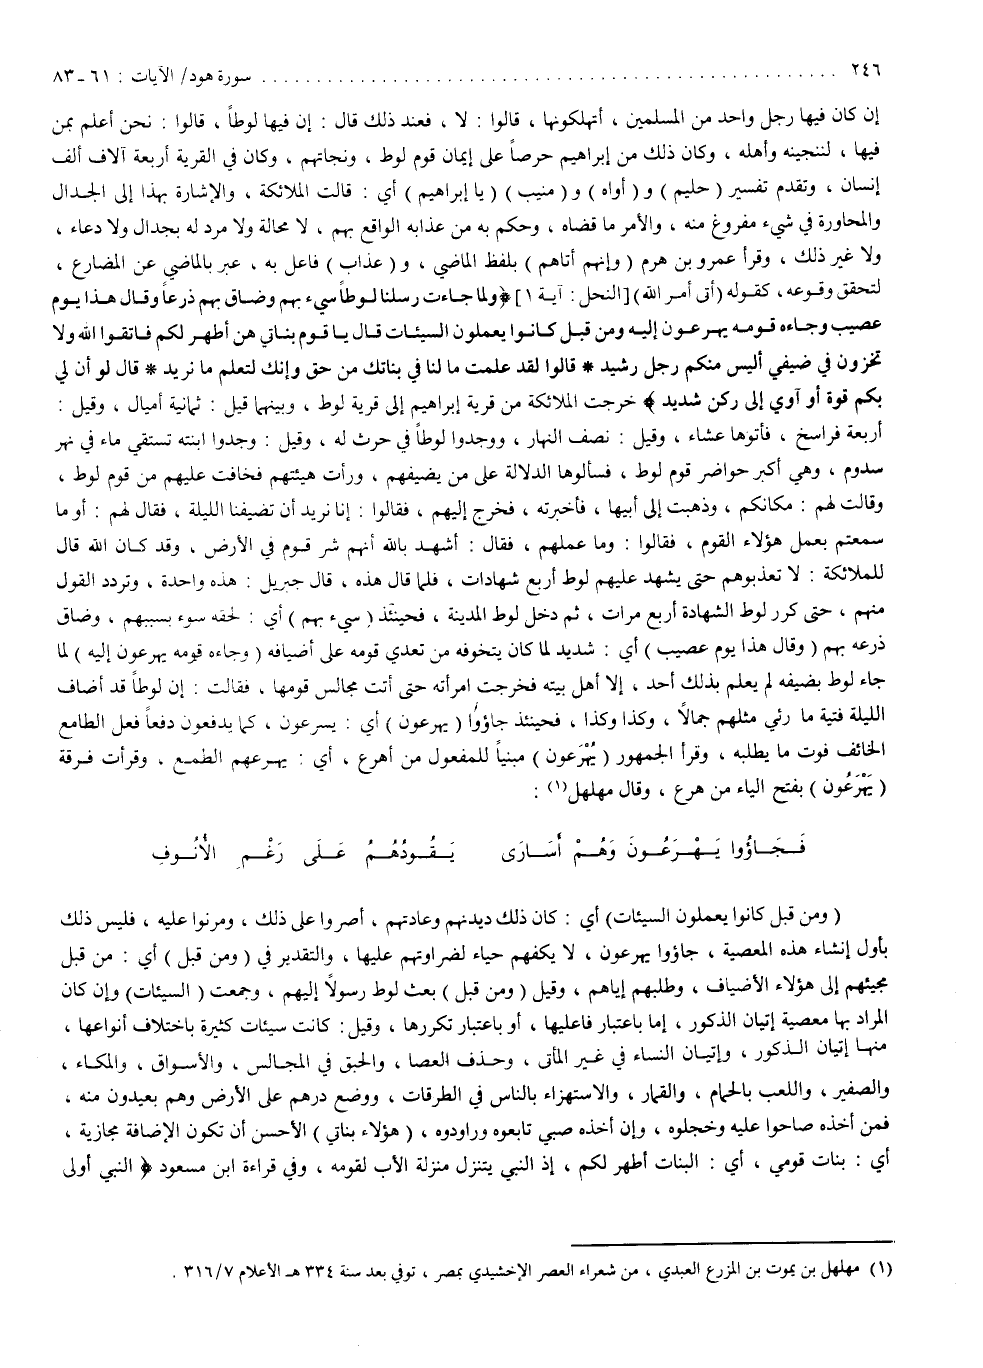 ٢٤٦ ........................................ سورة هود/ الآيات : ٦١ - ٨٣
إن كان فيها رجل واحد من المسلمين ، أتهلكونها ، قالوا : لا ، فعند ذلك قال : إن فيها لوطاً ، قالوا : نحن أعلم بمن
فيها ، لننجينه وأهله ، وكان ذلك من إبراهيم حرصاً على إيمان قوم لوط ، ونجاتهم ، وكان في القرية أربعة آلاف ألف
إنسان ، وتقدم تفسير ( حليم ) و ( أواه ) و ( منيب ) ( يا إبراهيم ) أي : قالت الملائكة ، والإشارة بهذا إلى الجدال
والمحاورة في شيء مفروغ منه ، والأمر ما قضاه ، وحكم به من عذابه الواقع بهم ، لا محالة ولا مرد له بجدال ولا دعاء ،
ولا غير ذلك ، وقرأ عمرو بن هرم ( وإنهم أتاهم ) بلفظ الماضي ، و ( عذاب ) فاعل به ، عبر بالماضي عن المضارع ،
لتحقق وقوعه ، كقوله ( أتى أمر الله ) [ النحل : آية ١ ] ﴿ ولما جاءت رسلنا لوطاً سيء بهم وضاق بهم ذرعاً وقال هذا يوم
عصيب وجاءه قومه يهرعون إليه ومن قبل كانوا يعملون السيئات قال يا قوم بناتي هن أطهر لكم فاتقوا الله ولا
تخزون في ضيفي أليس منكم رجل رشيد * قالوا لقد علمت ما لنا في بناتك من حق وإنك لتعلم ما نريد * قال لو أن لي
بكم قوة أو آوي إلى ركن شديد ﴾ خرجت الملائكة من قرية إبراهيم إلى قرية لوط ، وبينهما قيل : ثمانية أميال ، وقيل :
أربعة فراسخ ، فأتوها عشاء ، وقيل : نصف النهار ، ووجدوا لوطاً في حرث له ، وقيل : وجدوا ابنته تستقي ماء في نهر
سدوم ، وهي أكبر حواضر قوم لوط ، فسألوها الدلالة على من يضيفهم ، ورأت هيئتهم فخافت عليهم من قوم لوط ،
وقالت لهم : مكانكم ، وذهبت إلى أبيها ، فأخبرته ، فخرج إليهم ، فقالوا : إنا نريد أن تضيفنا الليلة ، فقال لهم : أو ما
سمعتم بعمل هؤلاء القوم ، فقالوا : وما عملهم ، فقال : أشهد بالله أنهم شر قوم في الأرض ، وقد كان الله قال
للملائكة : لا تعذبوهم حتى يشهد عليهم لوط أربع شهادات ، فلما قال هذه ، قال جبريل : هذه واحدة ، وتردد القول
منهم ، حتى كرر لوط الشهادة أربع مرات ، ثم دخل لوط المدينة ، فحينئذ ( سيء بهم ) أي : لحقه سوء بسببهم ، وضاق
ذرعه بهم ( وقال هذا يوم عصيب ) أي : شديد لما كان يتخوفه من تعدي قومه على أضيافه ( وجاءه قومه يهرعون إليه ) لما
جاء لوط بضيفه لم يعلم بذلك أحد ، إلا أهل بيته فخرجت امرأته حتى أتت مجالس قومها ، فقالت : إن لوطاً قد أضاف
الليلة فتية ما رئي مثلهم جمالًا ، وكذا وكذا ، فحينئذ جاؤوا ( يهرعون ) أي : يسرعون ، كما يدفعون دفعاً فعل الطامع
الخائف فوت ما يطلبه ، وقرأ الجمهور ( يُهْرَعون ) مبنياً للمفعول من أهرع ، أي : يهرعهم الطمع ، وقرأت فرقة
( يَهْرَعُون ) بفتح الياء من هرع ، وقال مهلهل(١) :
فَجَاؤُوا يَهْرَعُونَ وَهُمْ أَسَارَى يَقُودُهُمُ عَلَى رَغْمِ الأُنُوفِ
( ومن قبل كانوا يعملون السيئات) أي : كان ذلك ديدنهم وعادتهم ، أصروا على ذلك ، ومرنوا عليه ، فليس ذلك
بأول إنشاء هذه المعصية ، جاؤوا يهرعون ، لا يكفهم حياء لضراوتهم عليها ، والتقدير في ( ومن قبل ) أي : من قبل
مجيئهم إلى هؤلاء الأضياف ، وطلبهم إياهم ، وقيل ( ومن قبل ) بعث لوط رسولًا إليهم ، وجمعت ( السيئات) وإن كان
المراد بها معصية إتيان الذكور ، إما باعتبار فاعليها ، أو باعتبار تكررها ، وقيل : كانت سيئات كثيرة باختلاف أنواعها ،
منها إتيان الذكور ، وإتيان النساء في غير المأتى ، وحذف العصا ، والحبق في المجالس ، والأسواق ، والمكاء ،
والصفير ، واللعب بالحمام ، والقمار ، والاستهزاء بالناس في الطرقات ، ووضع درهم على الأرض وهم بعيدون منه ،
فمن أخذه صاحوا عليه وخجلوه ، وإن أخذه صبي تابعوه وراودوه ، ( هؤلاء بناتي ) الأحسن أن تكون الإضافة مجازية ،
أي : بنات قومي ، أي : البنات أطهر لكم ، إذ النبي يتنزل منزلة الأب لقومه ، وفي قراءة ابن مسعود ﴿ النبي أولى
(١) مهلهل بن يموت بن المزرع العبدي ، من شعراء العصر الإخشيدي بمصر ، توفي بعد سنة ٣٣٤ هـ الأعلام ٣١٦/٧ .